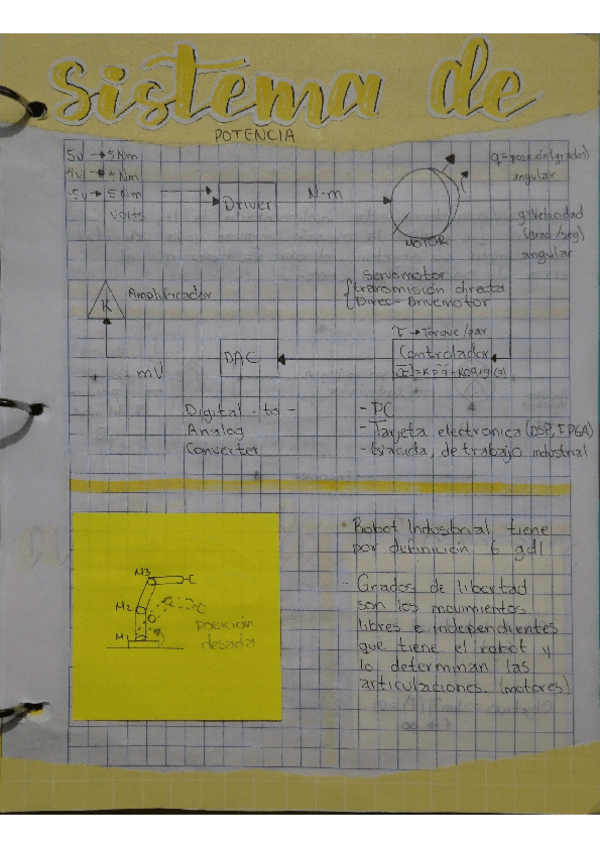 sistema de
POTENCIA
5v → 5Nm
4v → 4 Nm
-5v → 5 Nm
volts
Driver
N-m
MOTOR
q = posición (grados)
angular
q = Velocidad
(grad/seg)
angular
Servomotor
transmisión directa
Direc-Drivemotor
K
Amplificador
τ → Torque/par
Controlador
DAC
mV
Digital - to -
Analog
Converter
- PC
- Tarjeta electronica (DSP, FPGA)
de trabajo industrial
M3
M2
M1
posición
desada
• Robot Industrial tiene
por definición 6 gdl
- Grados de libertad
son los movimientos
libres e independientes
que tiene el robot y
lo determinan las
articulaciones. (motores)